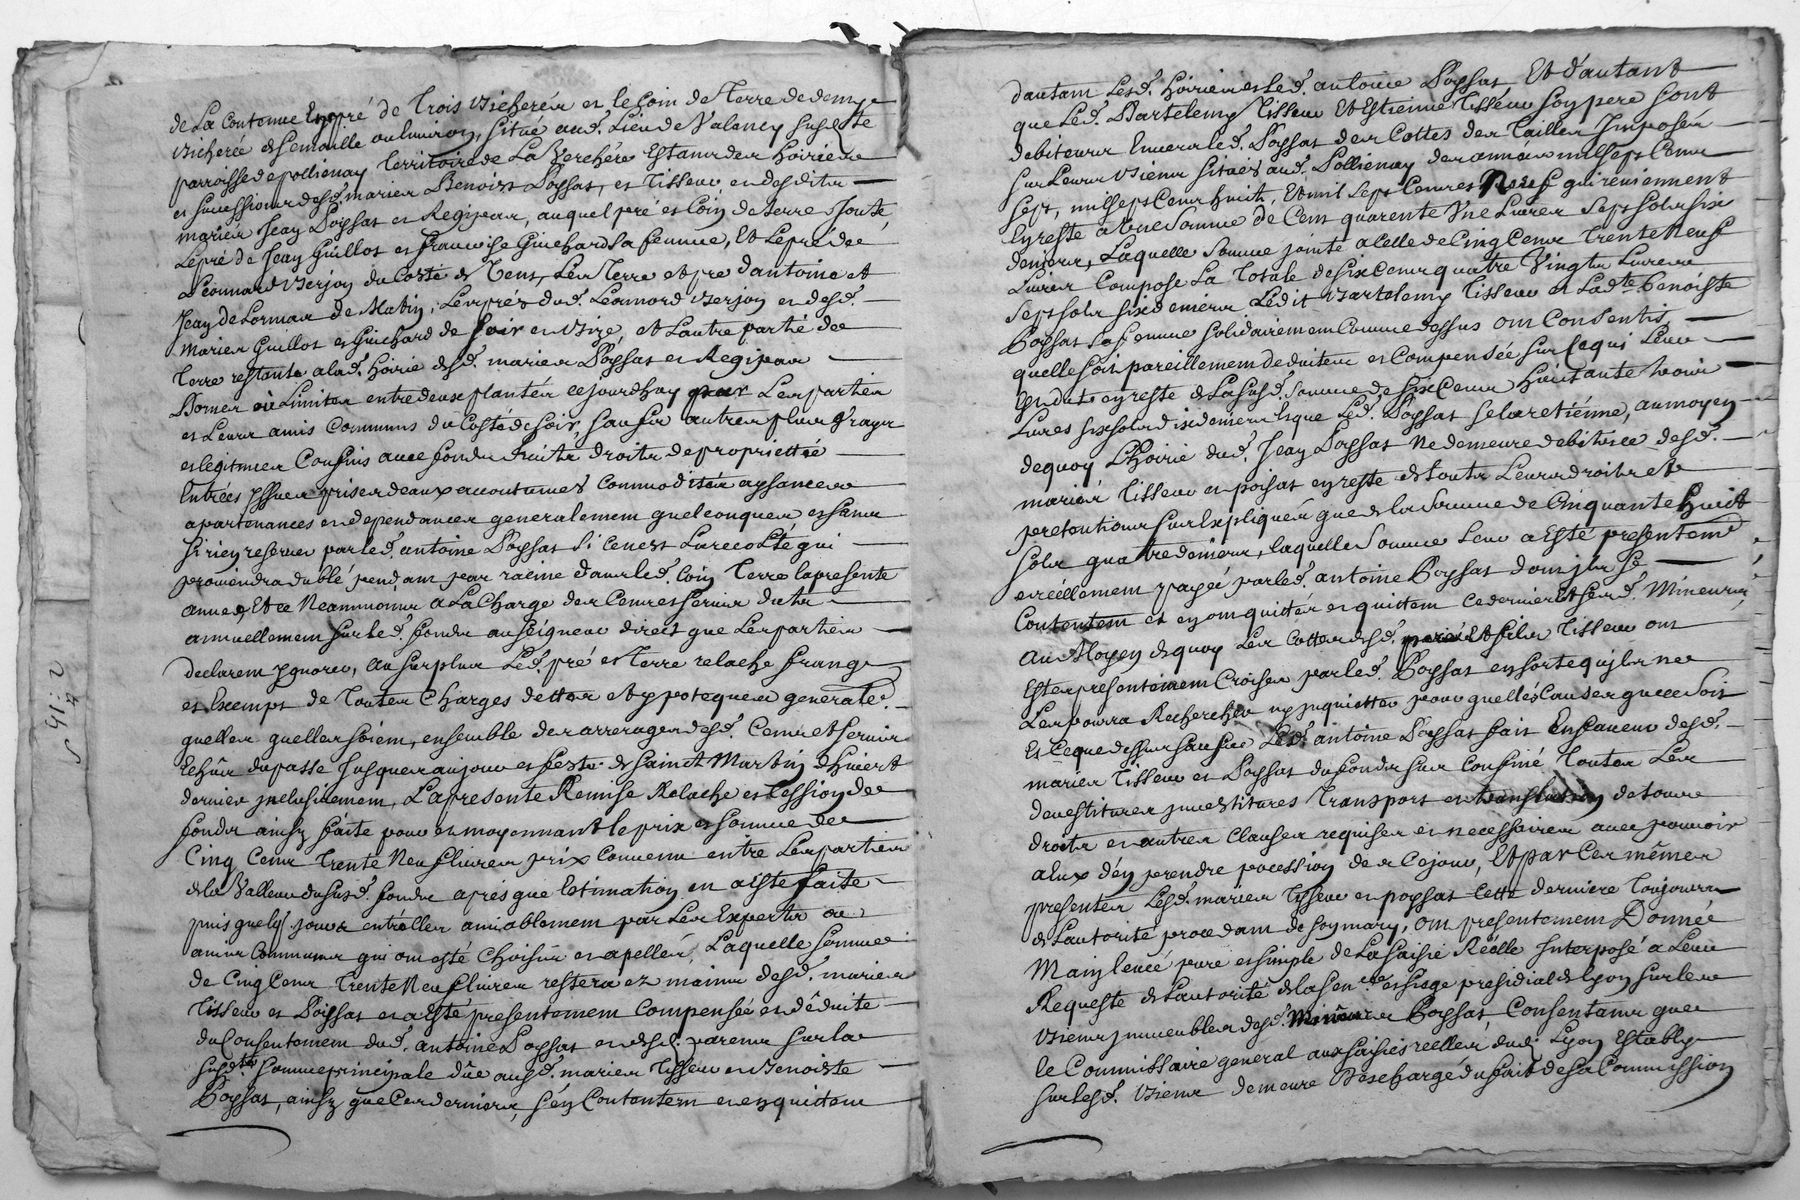 de La Contenue Le pré de Trois Bicherées et le coin de Terre de demye
Bicherée de semaille ou Environ, situé aud. Lieu de Valency susditte
parroisse de pollienay Territoire de La Verchere Estans des hoiries
et successions desd. mariez Benoist Poyssat, et Tisseu, et desdits
mariez Jean Poyssat et Regipeau, auquel pré et Coin de terre Joute
Le pré de Jean Guillot et francoise Guichard sa femme, Et Le pré de
Leonnard Verjon du Costé de Vent, Les Terre et pré d'antoine et
Jean de Lorman de Matin, Les prés dud. Leonnord Verjon et desd.
Mariez Guillot et Guichard de soir et Bize, et L'autre partie de
Terre restante a lad. hoirie desd. mariez Poyssat et Regipeau
Bornes et Limites entredeux plantés cejourdhuy par Les parties
et Leurs amis Communs du Costé de soir, sauf ses autres plus vrays
et legitimes Confins avec fonds droits de proprietté
Entrées Yssues prises deaux accoutumés commodités aysances
apartenances et dependances generalement quelconques et sans
si rien reserver par led. antoine Poyssat si ce n'est La recolte qui
proviendra du blé pendant par racine dans led. Coin Terre la presente
année, Et ce Neanmoins a La Charge des Cens et servis dubts
annuellement sur led. fonds au seigneur direct que Les parties
declarent Ygnorer, au surplus Led. pré et Terre relaché franq
et Exempt de Toutes Charges dettes et ypoteques generale
quelles quelles soient, ensemble des arrerages desd. Cens et servis
Echûs du passé Jusques aujour et feste de saint Martin d'hivert
dernier inclusivement, La presente Remise Relache et Cession de
fonds ainsy faite pour et moyennant le prix et somme de
Cinq Cens Trente Neuf livres prix Convenu entre Les parties
de la Valleur du susd. fonds aprés que L'estimation en a esté faite
puis quelq. jours entr'elles amiablement par Les Experts ou
amis Communs qui ont esté Choisis et apellés, Laquelle somme
de Cinq Cens Trente Neuf livres restera ez mains desd. mariez
Tisseu et Poyssat et a esté presentement Compensée et déduite
du Consentement dud. antoine Poyssat et desd. parens sur la
susd.te somme principale dûe ausd. mariez Tisseu et Benoiste
Poyssat, ainsy que Ces derniers, s'en Contentent et en quittent
d'autant Lesd. hoiries et Led. antoine Poyssat Et d'autant
que Led. Bartelemy Tisseu Et Estienne Tisseur son pere sont
debiteurs Envers led. Poyssat des Cottes des Tailles Imposés
sur Leurs Biens situés aud. Pollienay des années mil sept Cens
sept, mil sept Cens huit, Et mil sept Cens et Neuf qui reviennent
En reste a Une Somme de Cent quarente Une Livres sept sols six
deniers, Laquelle somme jointe a Celle de Cinq Cens Trente Neuf
Livres Compose La Totale de six Cens quatre Vingts Livres
sept sols six deniers Ledit Bartelemy Tisseu et Lad.te Benoiste
Poyssat sa femme solidairement Comme dessus ont Consentis
quelle soit pareillement deduitte et Compensée sur Ce qui Leur
est dub en reste de La susd. somme de six Cens huictante
Livres six sols dix deniers Et que Led. Poyssat se La retienne, au moyen
de quoy L'hoirie dud. Jean Poyssat ne demeure debitrice desd.
mariés Tisseu et poissat en reste de touts Leurs droits et
pretentions sus Expliqués que de la Somme de Cinquante huict
sols quatre deniers, laquelle Somme Leur a Esté presentemt
et reéllement payée par led. antoine Poyssat dont ils se
Contentent et en ont quittés et quittent Ce dernier Et sesd. Mineurs
Au Moyen de quoy Les Cottes desd. pere Et fils Tisseu ont
Esté presentement Croisés par led. Poyssat en sorte qu'il ne
Les pourra Rechercher ny inquietter pour quelles Causes que ce soit
Et ce que dessus sauf ce Led. antoine Poyssat fait En faveur desd.
mariez Tisseu et Poyssat du fonds sus Confiné Toutes Les
devestitures investitures Transport et translation de tous
droits et autres Clauses requises et necessaires avec pouvoir
a Eux d'en prendre possession des Cejour, Et par Ces mêmes
presentes Lesd. mariez Tisseu et poyssat Cette derniere Toujours
de L'autorité procedant de son mary, ont presentement Donné
Mainlevée pure et simple de La saisie Réelle Interposé a Leur
Requeste de L'autorité de la Sen.cée et siege presidial de Lyon sur les
Biens immeubles desd. Mineurs Poyssat, Consentans que
le Commissaire general aux saisies reelles dud. Lyon Estably
sur lesd. Biens demeure Deschargé du fait de sa Commission